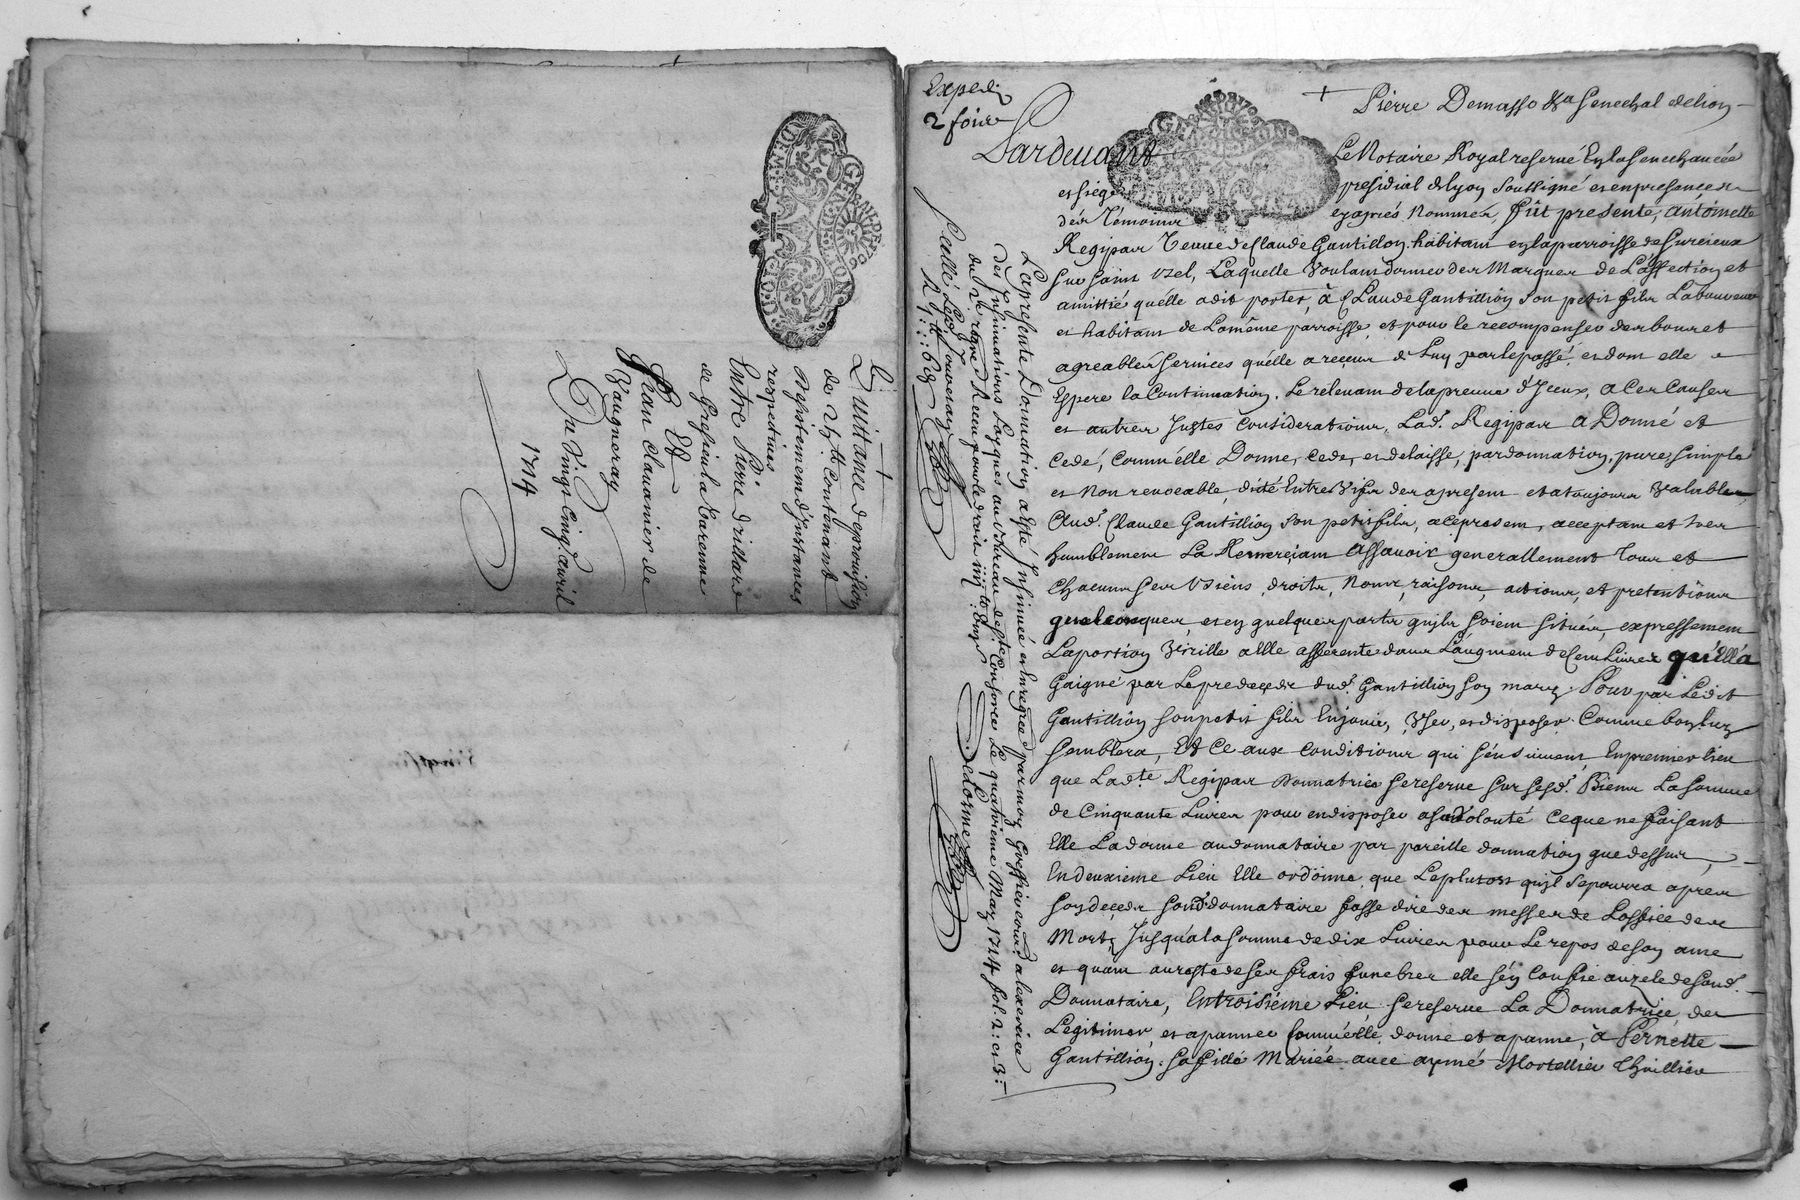 Quittance de provision
de 25tt contenant
Desistement d'instances
respectives.
Entre Pierre
de Gresieu la Varenne
Et
Jean Clavanier de
Vaugneray
Du Vingt Cinq.e avril
1714
GENERALITE DE LION
Expedié
2 fois
Pierre Demasso &a Senechal de Lion
Pardevant Le Notaire Royal reservé En la Senechaucée
et siege presidial de Lyon soussigné et en presence
des Témoins cy aprés Nommés, fût presente, Antoinette
Regipas Veuve de Claude Gantillon habitant en la parroisse de Surcieux
Sur saint Bel, Laquelle Voulant donner des Marques de L'affection et
amittié quélle a dit porter, à Claude Gantillion son petit fils Laboureur
et habitant de La méme parroisse, et pour le recompenser des bons et
agreables services quélle a reçeus de Luy par le passé, et dont elle
Espere la Continuation, Le relevant de la preuve d'Iceux, a Ces Causes
et autres Justes Considerations, Lad.e Regipas a Donné et
Cedé, Comm'elle Donne, cede, et delaisse, par donnation, pure, simple
et Non revocable, dité Entre Vifs des apresent et a toujours Valable
Aud.t Claude Gantillion son petit fils, a Ce present, acceptant et tres
humblement La Remerçiant Assavoir generallement Tous et
Chacuns ses Biens, droits, Noms, raisons, actions, et pretentions
quelconques, et en quelques parts qu'ils soient situés, expressement
La portion Virille a Elle afferente dans L'augment de Cent Livres qu'ell'a
Gaigné par Le predecedé dud.t Gantillion son mary. Pour par Ledit
Gantillion son petit fils En Jouir, User, et disposer Comme bon luy
semblera, Et Ce aux Conditions qui sénsuivent, En premier lieu
que Lad.te Regipas Donnatrice se reserve sur sesd.t Biens La somme
de Cinquante Livres pour en disposer a sa Volonté Ce que ne faisant
Elle La donne au donnataire par pareille donnation que dessus,
En deuxieme Lieu Elle ordonne que Le plutost qu'il se pourra apres
son deçeds son d. donnataire fasse dire des messes de L'office des
Morts Jusqu'a la somme de dix Livres pour Le repos de son ame
et quant au reste de ses frais funebres elle s'én Confie au zele de sond.
Donnataire, En troisiéme Lieu, se reserve La Donnatrice, de
Legitimer, et apanner Comm'elle donne et apanne, à Pernette
Gantillion sa fille Mariée avec aymé Mortellier Thuillier
La presente Donnation a esté Insinuée et Enregistrée par moy Greffier commis a l'exercice
des Insinuations Laÿques au Bureau de Le quatrieme May 1714 fol. 2: et 3:
Delorme
Scellé Led. Jour